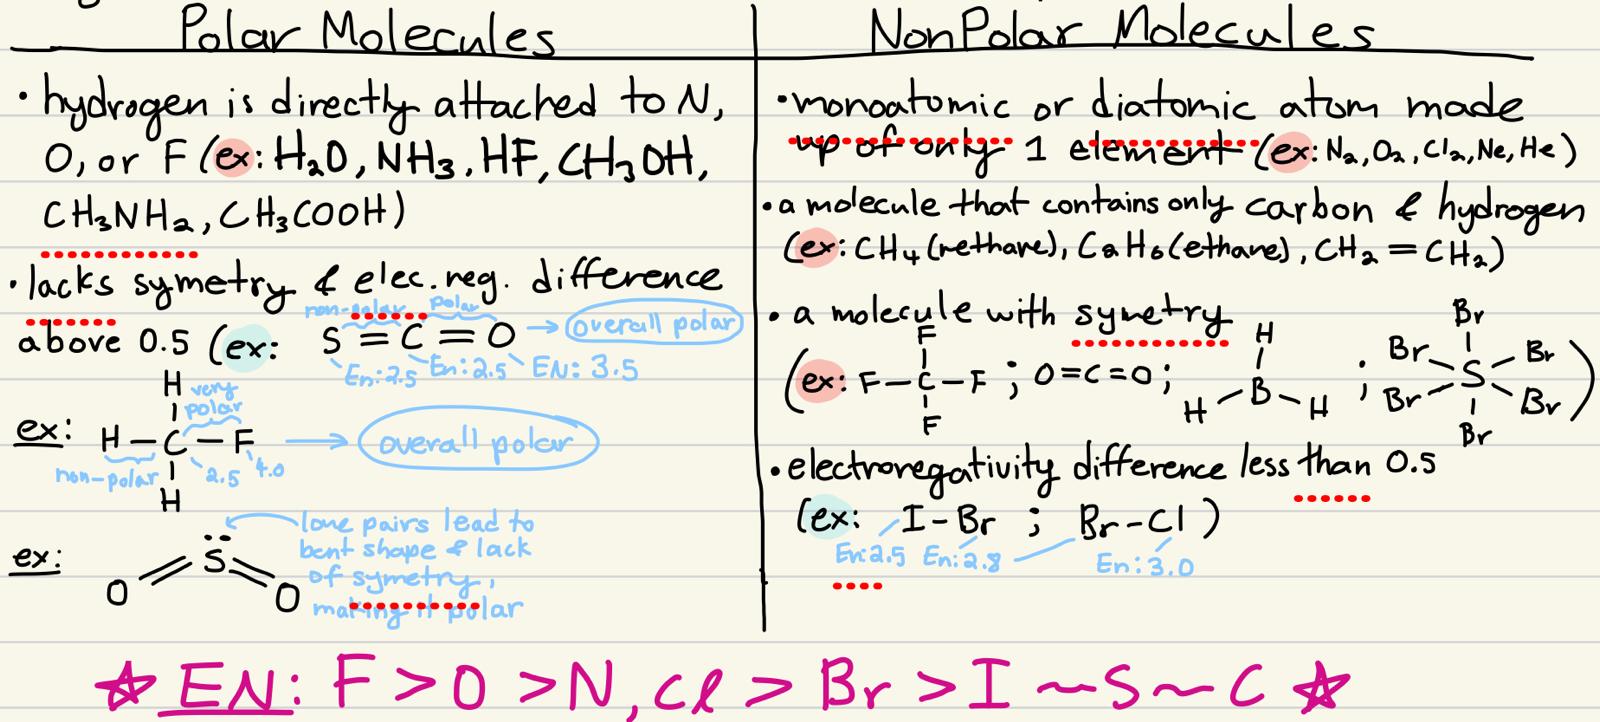 Polar Molecules
• hydrogen is directly attached to N,
O, or F (ex: H₂O, NH₃, HF, CH₃OH,
CH₃NH₂, CH₃COOH)
• lacks symetry & elec.neg. difference
above 0.5 (ex:
non-polar polar
S = C = O → overall polar
En:2.5 En:2.5 EN: 3.5
H
very
polar
ex: H — C — F → overall polar
non-polar 2.5 4.0
H
ex:
S
O O
lone pairs lead to
bent shape & lack
of symetry,
making it polar
NonPolar Molecules
• monoatomic or diatomic atom made
up of only 1 element (ex: N₂, O₂, Cl₂, Ne, He)
• a molecule that contains only carbon & hydrogen
(ex: CH₄ (methane), C₂H₆ (ethane), CH₂ = CH₂)
• a molecule with symetry
F H Br
Br Br
(ex: F—C—F ; O=C=O; B ; S )
H H Br Br
F Br
• electronegativity difference less than 0.5
(ex: I-Br ; Br-Cl )
En:2.5 En:2.8 En:3.0
☆ EN: F > O > N, Cl > Br > I ~ S ~ C ☆